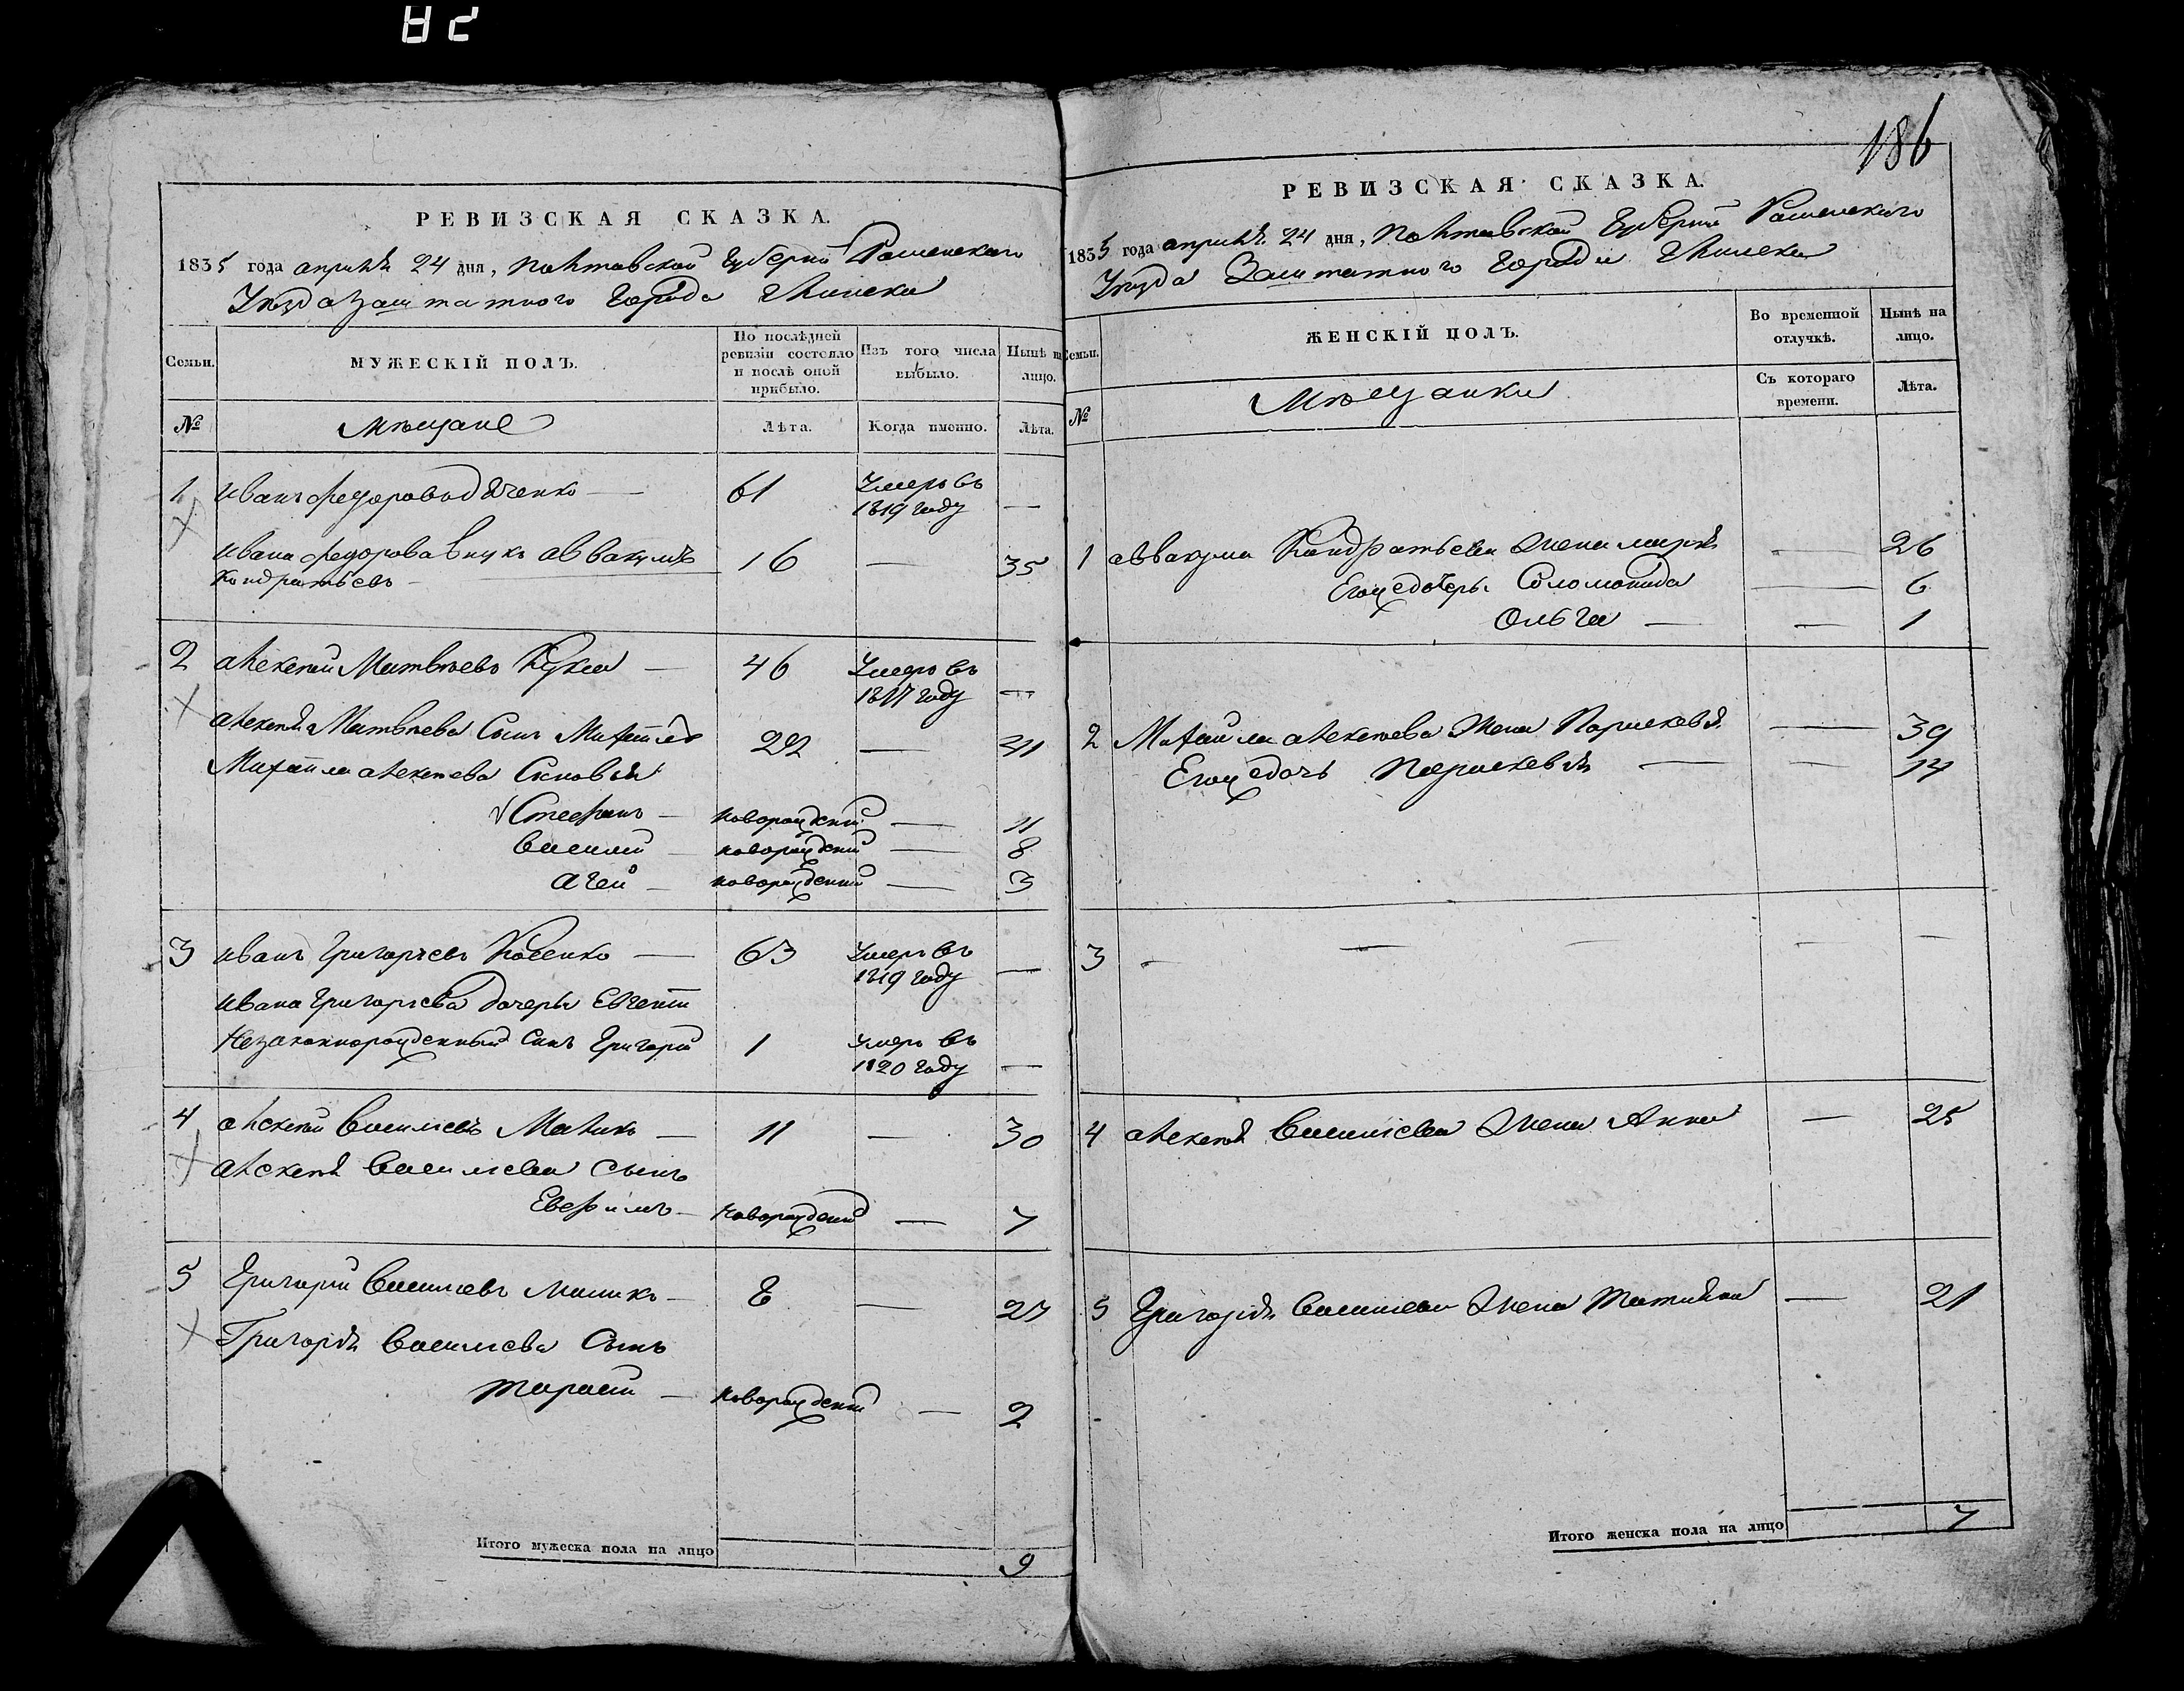 186
РЕВИЗСКАЯ СКАЗКА.
1835 года апрѣля 24 дня, Полтавской Губерніи Роменскаго
Уѣзда Заштатного Города Глинска
Семьи.
МУЖЕСКІЙ ПОЛЪ.
По послѣдней ревизіи состояло и послѣ оной прибыло.
Изъ того числа выбыло.
Нынѣ на лицо.
№
Мѣщане
Лѣта.
Когда именно.
Лѣта.
1 Иванъ Федоровъ — 61 Умеръ въ
1819 году —
Ивана Федорова внукъ Аввакумъ 16 — 35
Кондратьевъ —
2 Алексѣй Матвѣевъ Кукса — 46 Умеръ въ
1817 году —
Алексѣя Матвѣева Сынъ Михайло 22 — 41
Михайла Алексѣева Сыновья
Стефанъ — новорожденій — 11
Василій — новорожденій — 8
Агей — новорожденій — 3
3 Иванъ Григорьевъ — 63 Умеръ въ
1819 году —
Ивана Григорьева дочеры Евгеніи
Незаконнорожденный Сынъ Григорій 1 Умеръ въ
1820 году —
4 Алексѣй Васильевъ Маликъ — 11 — 30
Алексѣя Васильева Сынъ
Евфимъ — новорожденій — 7
5 Григорій Васильевъ Маликъ — 8 — 27
Григорія Васильева Сынъ
Тарасій — новорожденій — 2
Итого мужеска пола на лицо 9
РЕВИЗСКАЯ СКАЗКА.
1835 года апрѣля 24 дня, Полтавской Губерніи Роменскаго
Уѣзда Заштатного Города Глинска
Семьи.
ЖЕНСКІЙ ПОЛЪ.
Во временной отлучкѣ.
Нынѣ на лицо.
№
Мѣщанки
Съ котораго времени.
Лѣта.
1 Аввакума Кондратьева Жена Марія — 26
Егожъ дочеры Соломонида — 6
Ольга — — 1
2 Михайла Алексѣева Жена Параскевія — 39
Егожъ дочь Параскевія — — 14
3 — — — — —
4 Алексѣя Васильева Жена Анна — 25
5 Григорія Васильева Жена Татіяна — 21
Итого женска пола на лицо 7